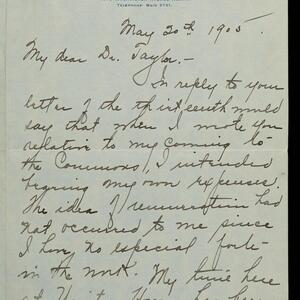 Telephone: Main 2721.
May 20th 1905.
My dear Dr. Taylor:-
In reply to your
letter of the thirteenth would
say that when I wrote you
relative to my coming to
the Commons, I intended
begging my own expenses.
The idea of remuneration had
not occurred to me since
I have no especial forte
in the work. My time here
at